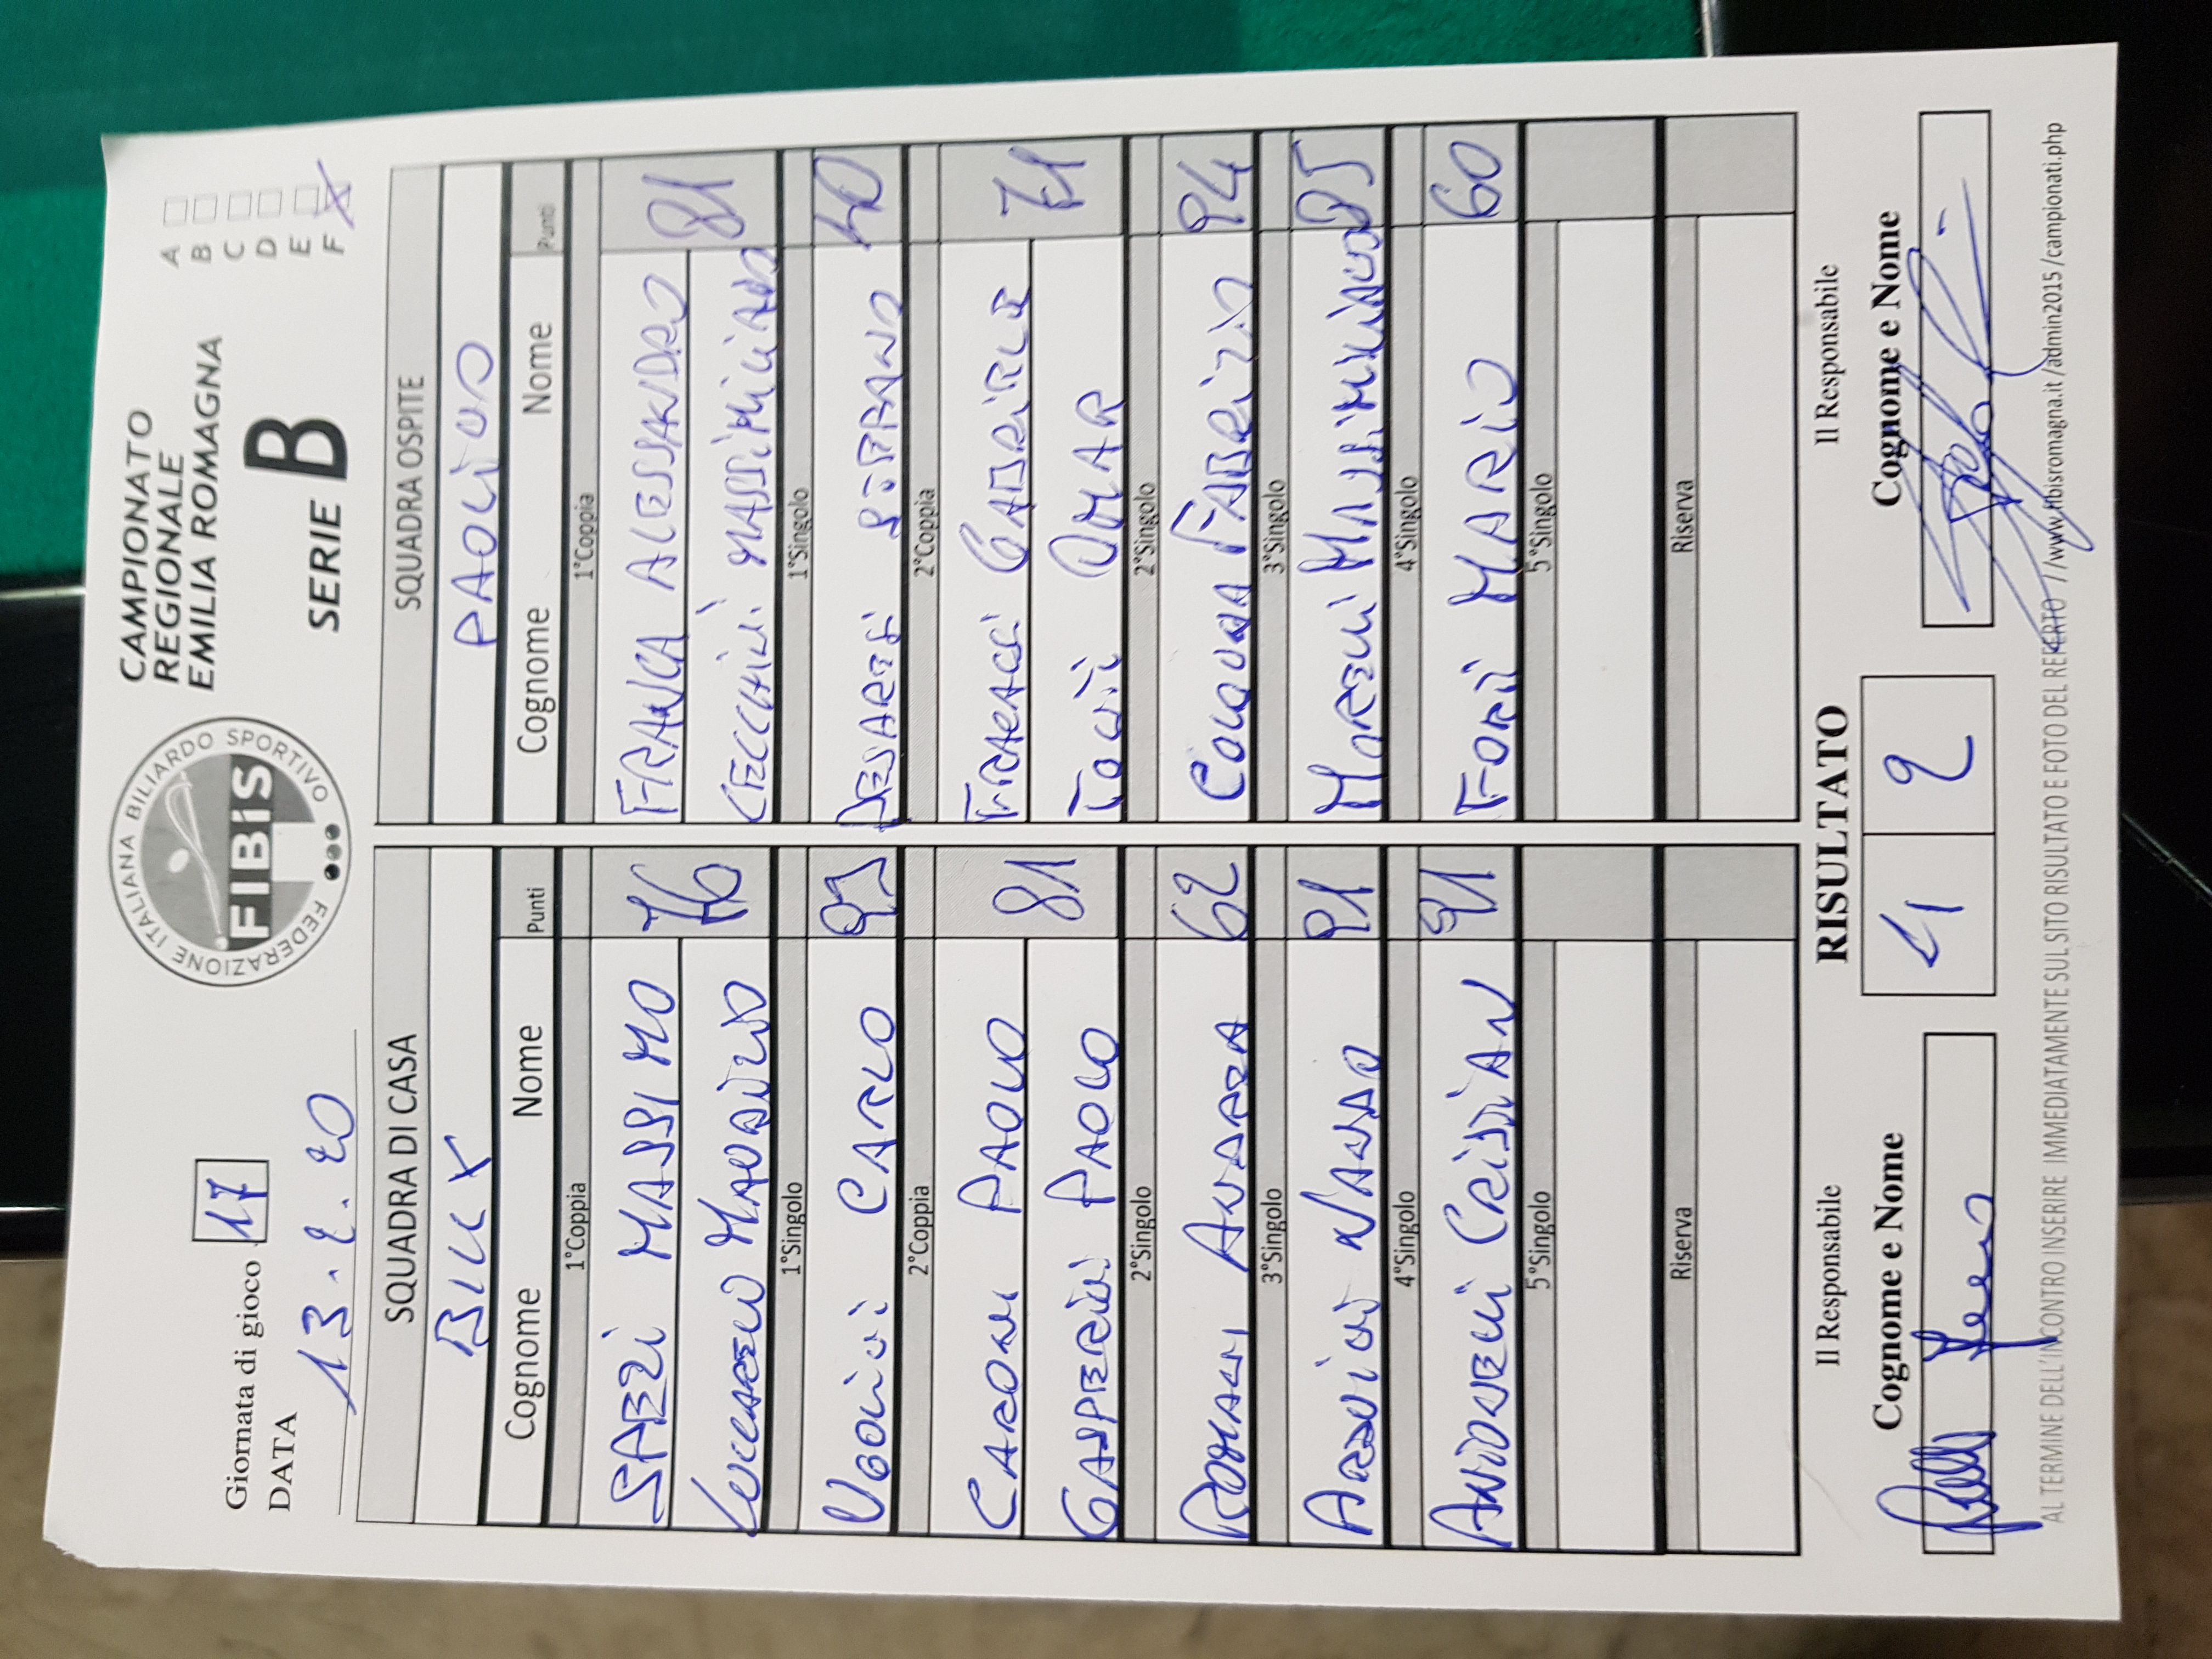 Giornata di gioco 17
DATA 13.2.20
FEDERAZIONE ITALIANA BILIARDO SPORTIVO
FIBiS
CAMPIONATO
REGIONALE
EMILIA ROMAGNA
SERIE B
A
B
C
D
E
F X
SQUADRA DI CASA
BILLX
Cognome Nome Punti
1°Coppia
SPEZI MASSIMO
MAURIZIO
76
1°Singolo
UGOLINI CARLO
2°Coppia
CARONI PAOLO
GASPERINI PAOLO
81
2°Singolo
ROMANI ANDREA 62
3°Singolo
ARDUINI 91
4°Singolo
ANTONELLI CRISTIAN 91
5°Singolo
Riserva
SQUADRA OSPITE
PAOLINO
Cognome Nome Punti
1°Coppia
FRANCA ALESSANDRO
CECCHINI MASSIMILIANO
81
1°Singolo
STEFANO 40
2°Coppia
GABRIELE
OMAR
71
2°Singolo
COLONNA FABRIZIO 94
3°Singolo
MORELLI MASSIMILIANO
4°Singolo
FORTI MARIO 60
5°Singolo
Riserva
Il Responsabile
Cognome e Nome
RISULTATO
4 2
Il Responsabile
Cognome e Nome
AL TERMINE DELL'INCONTRO INSERIRE IMMEDIATAMENTE SUL SITO RISULTATO E FOTO DEL REFERTO //www.fibisromagna.it/admin2015/campionati.php